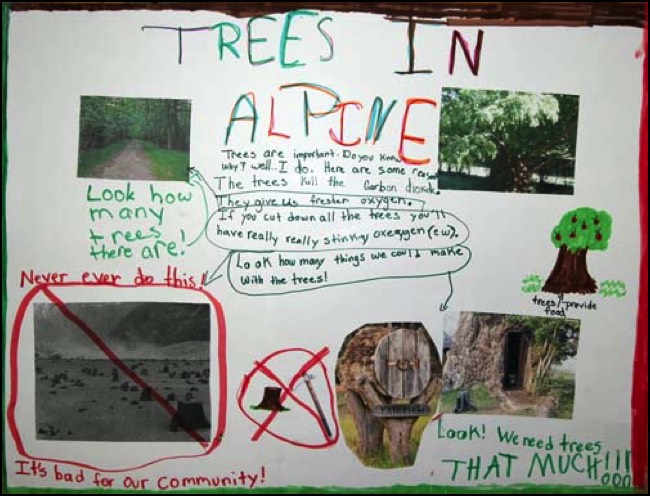 TREES IN
ALPINE
Trees are important. Do you know
why? well..I do. Here are some reas
The trees kill the Carbon dioxide.
They give us fresher oxygen.
If you cut down all the trees you'll
have really really stinky oxeggyn (ew).
Look how many things we could make
with the trees!
Look how
many
trees
there are!
trees provide
food
Never ever do this!
It's bad for our community!
Look! We need trees
THAT MUCH!!!